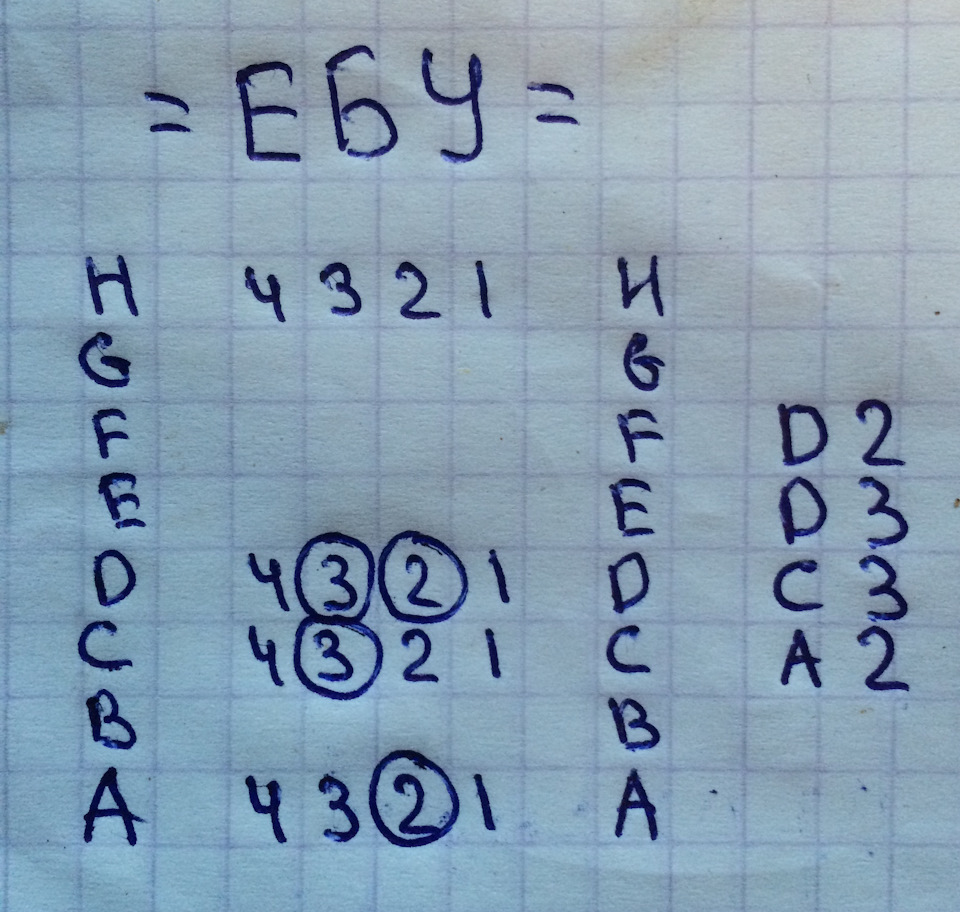 = ЕБУ =
H 4 3 2 1 H
G G
F F D 2
E E D 3
D 4 3 2 1 D C 3
C 4 3 2 1 C A 2
B B
A 4 3 2 1 A